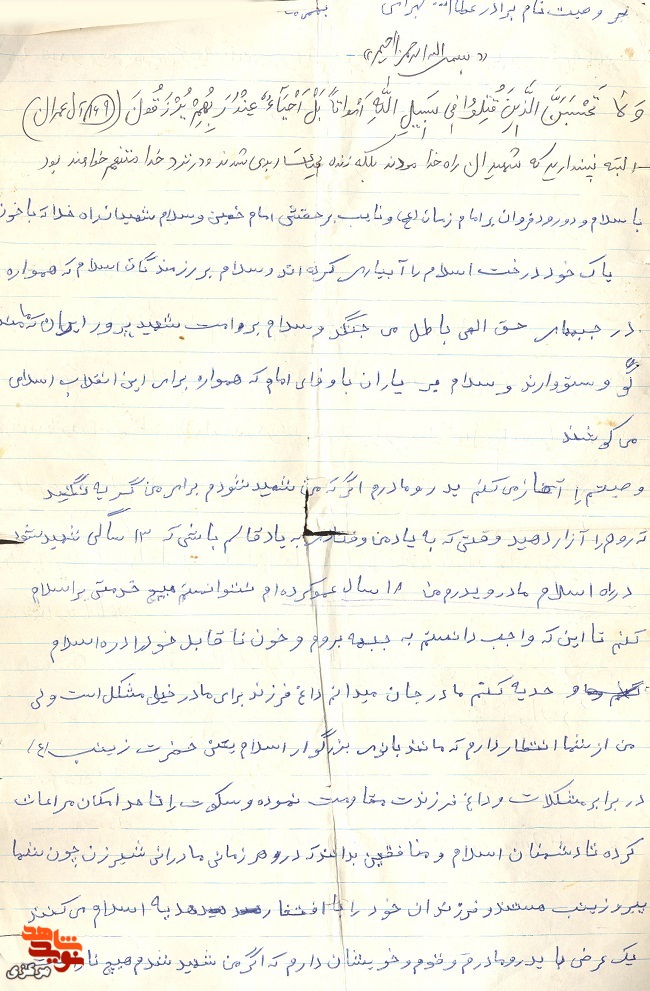 وصیت نام برادر عطااله بهرامی
«بسم الله الرحمن الرحیم»
وَلا تَحْسَبَنَّ الَّذِینَ قُتِلُوا فِی سَبِیلِ اللَّهِ أَمْواتاً بَلْ أَحْیَاءٌ عِنْدَ رَبِّهِمْ یُرْزَقُونَ (۱۶۹ آل عمران)
البته نپندارید که شهیدان راه خدا مردند بلکه زنده ابدی شدند و در نزد خدا متنعم خواهند بود
با سلام و درود فروان بر امام زمان (عج) و نایب بر حقش امام خمینی و سلام شهیدان راه خدا که با خون
پاک خود درخت اسلام را آبیاری کرده اند و سلام بر رزمندگان اسلام که همواره
در جبهای حق الهی باطل می جنگد و سلام بر امت شهید پرور ایران که مانند
کوه استوارند و سلام بر یاران باوفای امام که همواره برای این انقلاب اسلامی
می کوشند
وصیتم را آغاز می کنم پدر و مادرم اگر که من شهید شودم برای من گریه نکنید
که روحم را آزار دهید وقتی که به یاد من افتادید به یاد قاسم باشی که ۱۳ سالگی شهید شود
در راه اسلام مادر و پدرم من ۱۸ سال عمر کرده ام نتوانستم هیچ خدمتی بر اسلام
کنم تا این که واجب دانستم به جبهه بروم و خون نا قابل خود را در ه اسلام
و حدیه کنم مادر جان میدانم داغ فرزند برای مادر خیلی مشکل است ولی
من از شما انتظار دارم که مانند بانوی بزرگوار اسلام یعنی حضرت زینب (ع)
در برابر مشکلات و داغ فرزندت مقاومت نموده و سکوت را تا حد امکان مراعات
کرده تا دشمنان اسلام و منافقین بدانند که در هر زمانی مادرانی شیر زن چون شما
پیرو زینب هستند و فرزندان خود را با افتخار هدیه اسلام می کنند
یک عرض با پدر و مادرم و قوم و خویشان دارم که اگر من شهید شدم هیچ
شاهد
نوید
مرکزی